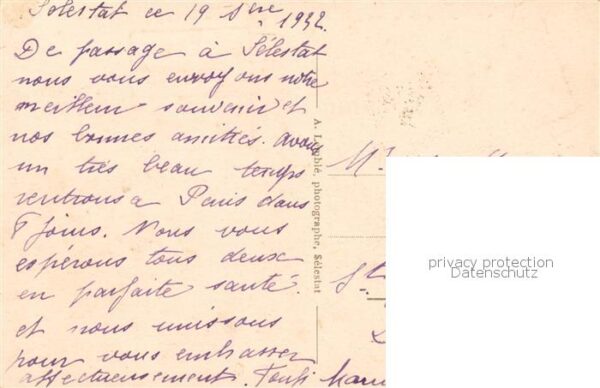 Sélestat ce 19 1932.
De passage à Sélestat
nous vous envoyons notre
meilleur souvenir et
nos bonnes amitiés. avons
un très beau temps
rentrons à Paris dans
8 jours. Nous vous
espérons tous deux
en parfaite santé.
et nous unissons
pour vous embrasser
affectueusement.
A. photographe, Sélestat
privacy protection
Datenschutz